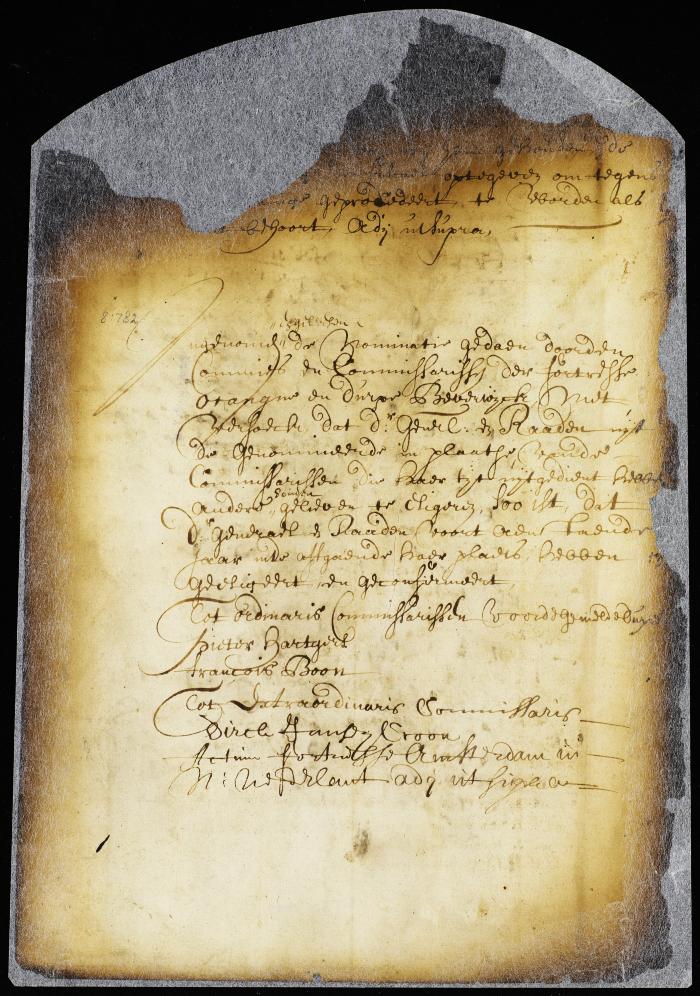 gehouden de
optegeven om tegens
geprocedeert te worden als
behoort, Adij ut supra,
8:782
gesien
ingenomen de Nominatie gedaen door den
Commies en Commissarissen der fortresse
Orangne en durpe Beverwyck Met
Versoeck dat d'. Gen'el: & Raaden uijt
de genomineerde in plaatse, van de
Commissarissen die haer tyt uijtgedient hebben
andere gelieven te eligeren, soo ist, dat
d'. Generael & Raaden voort aenstaende
Jaar inde affgaende haer plaets, hebben
geeligeert en geconfirmeert,
Tot ordinaris Commissarissen voorde gemelde
Pieter Hartgers
francois Boon
Tot Extraordinaris Commissaris
Dirck Jansen Croon
Actum fortresse Amsterdam in
N: Nederlant adij ut supra